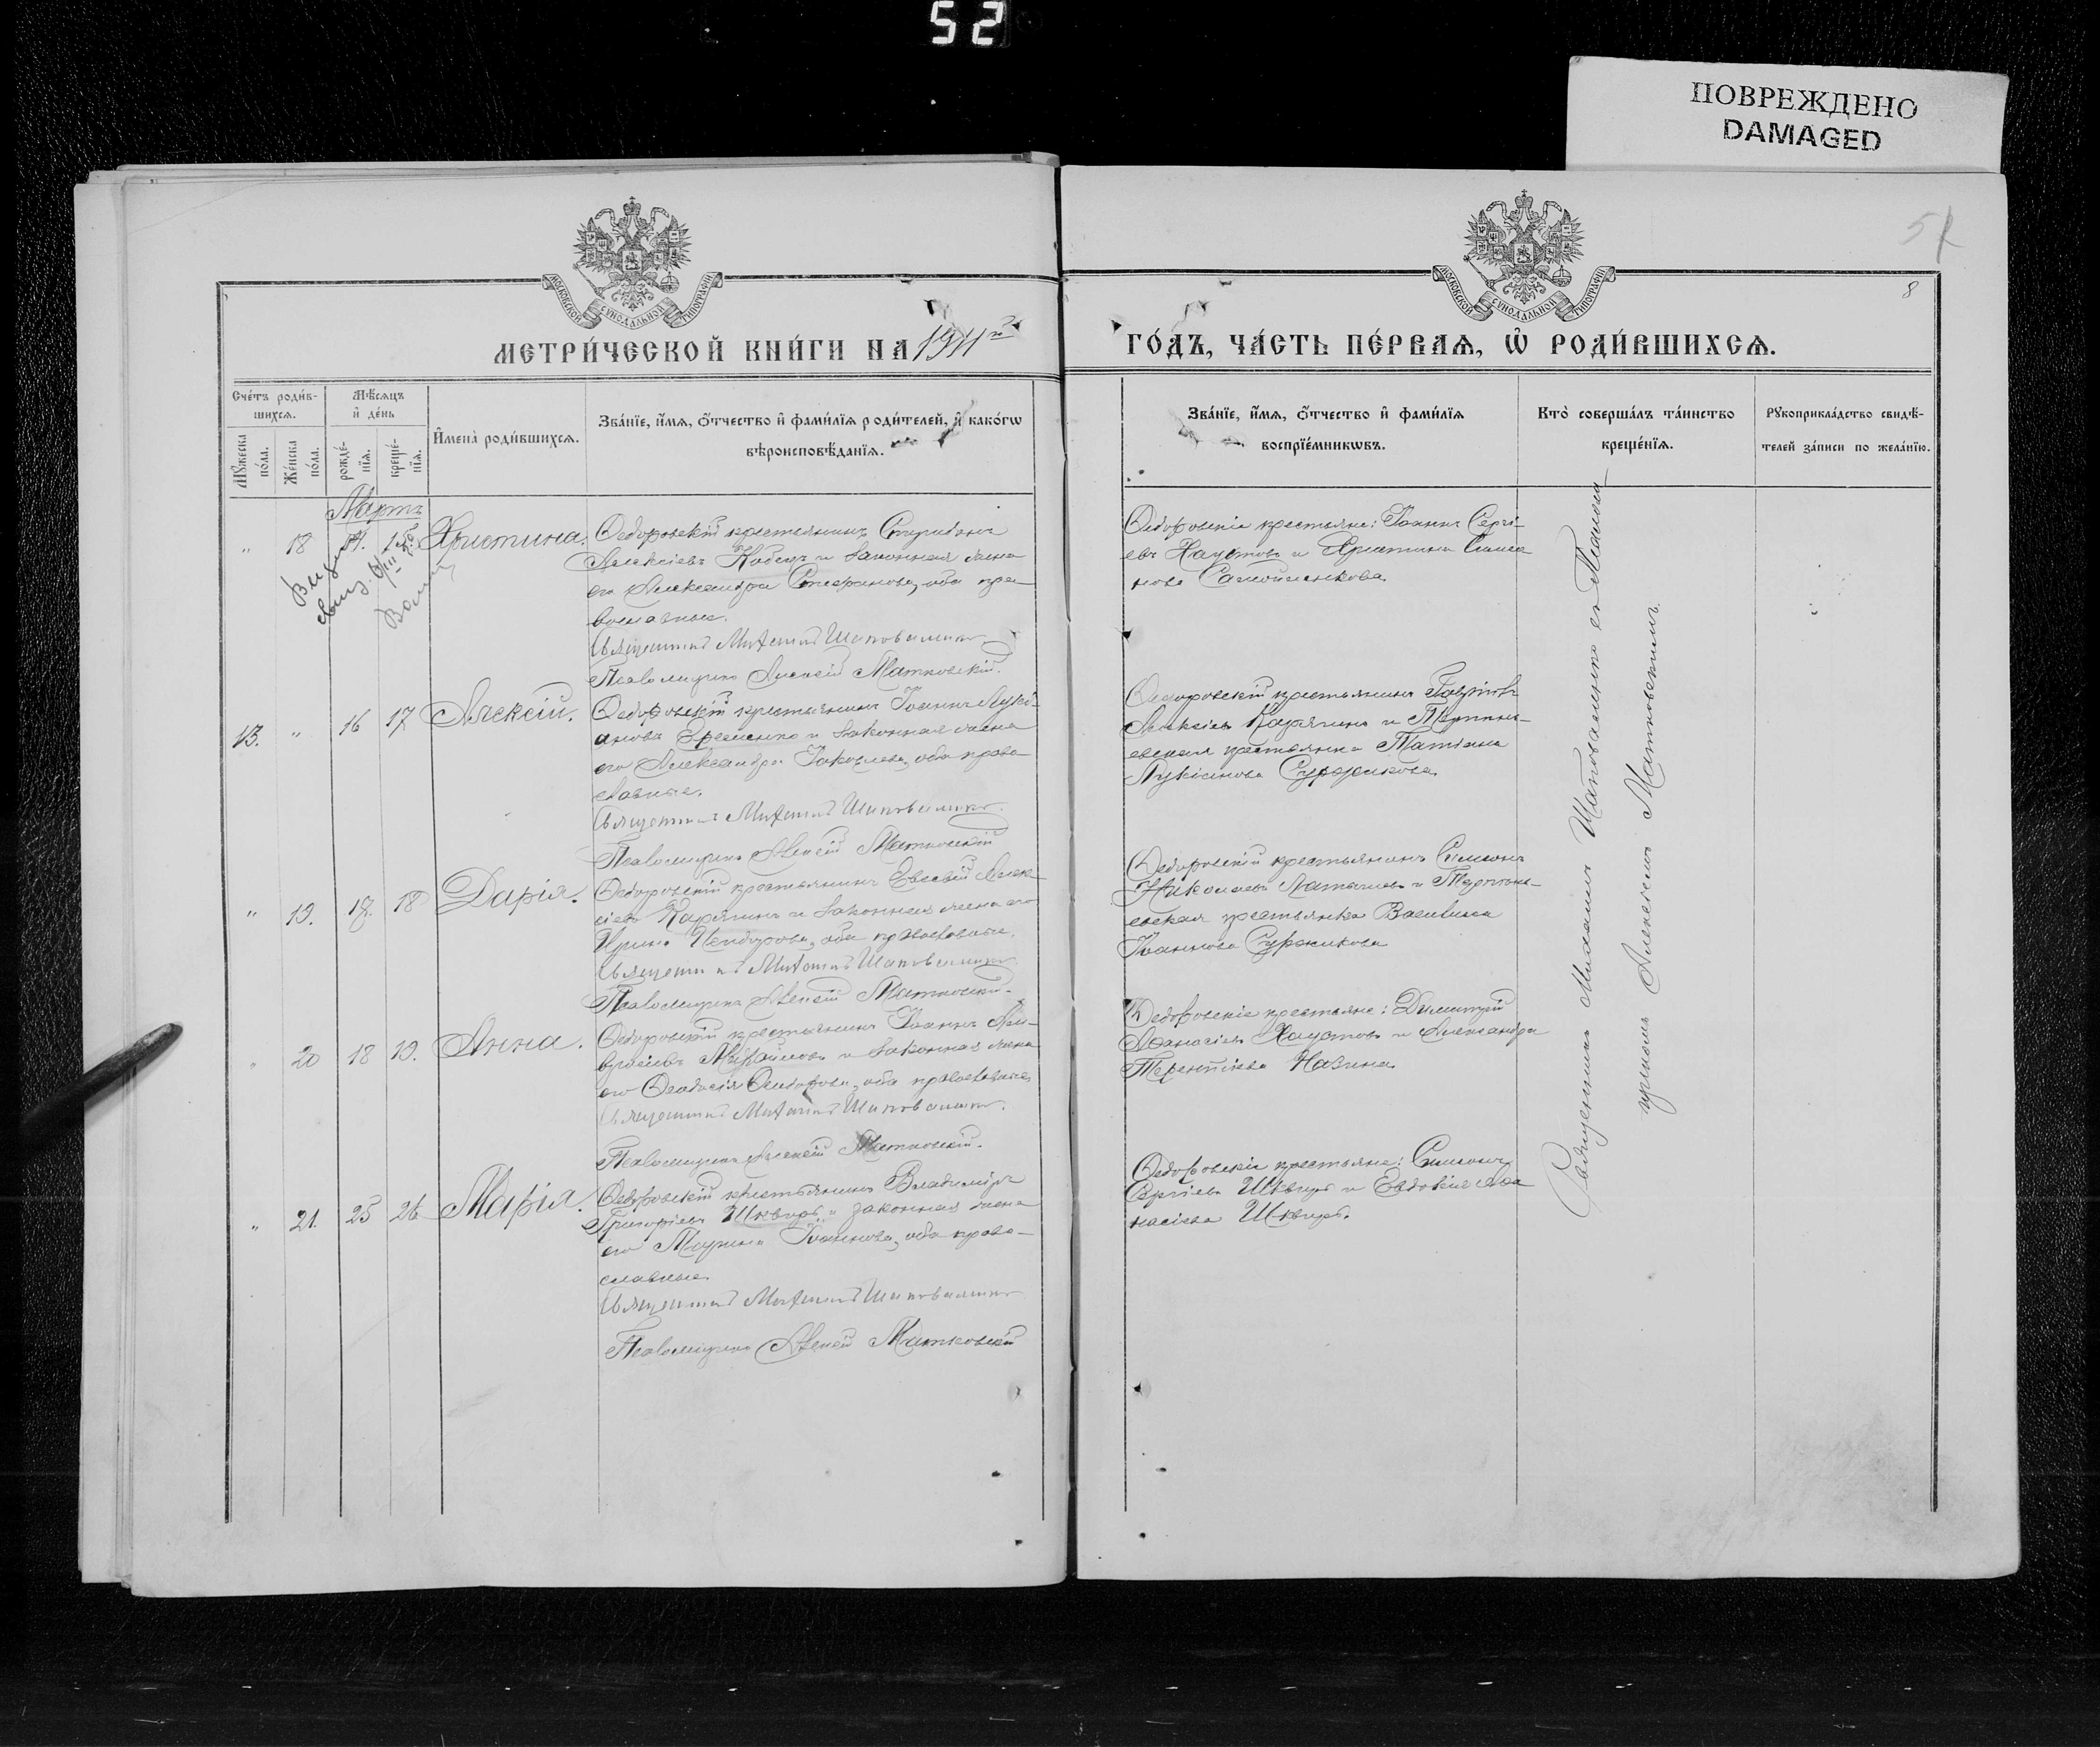 52
ПОВРЕЖДЕНО
DAMAGED
51
8
МОСКОВСКОЙ СѴНОДАЛЬНОЙ ТИПОГРАФІИ
МОСКОВСКОЙ СѴНОДАЛЬНОЙ ТИПОГРАФІИ
МЕТРИ́ЧЕСКОЙ КНИ́ГИ НА 1911 г
ГО́ДЪ, ЧА́СТЬ ПЕ́РВАѦ, Ѡ҆ РОДИ́ВШИХСѦ.
Сче́тъ роди́в-
шихсѧ.
Мꙋжеска
по́ла.
Же́нска
по́ла.
Мѣ́сѧцъ
и҆ де́нь
рожде́-
нїѧ.
креще́-
нїѧ.
И҆мена̀ роди́вшихсѧ.
Зва́нїе, и҆́мѧ, ѻ҆́тчество и҆ фами́лїѧ роди́телей, и҆ како́гѡ
вѣроисповѣ́данїѧ.
Зва́нїе, и҆́мѧ, ѻ҆́тчество и҆ фами́лїѧ
воспрїе́мникѡвъ.
Кто̀ соверша́лъ та́инство
креще́нїѧ.
Рꙋкоприкла́дство свидѣ́-
телей за́писи по жела́нїю.
Мартъ
" 18 14. 15. Христина.
Ѳедоровскій крестьянинъ Спиридонъ
Алексіевъ Кобецъ и законная жена
его Александра Стефанова, оба пра-
вославные.
Священникъ Михаилъ Шаповаленко
Псаломщикъ Алексій Матковскій.
Ѳедоровскіе крестьяне: Іоаннъ Сергі-
евъ Хаустовъ и Христина Симео
нова Самойленкова.
13. " 16 17 Алексій.
Ѳедоровскій крестьянинъ Іоаннъ Лукі-
ановъ Еременко и законная жена
его Александра Іаковлева, оба право-
славные.
Священникъ Михаилъ Шаповаленко
Псаломщикъ Алексій Матковскій
Ѳедоровскій крестьянинъ Гавріилъ
Алексіевъ Карягинъ и
крестьянка Татіана
Лукіанова Суржикова.
" 19. 17. 18 Дарія.
Ѳедоровскій крестьянинъ Евсевій Алек-
сіевъ Карягинъ и законная жена его
Ирина Исидорова, оба православные.
Священникъ Михаилъ Шаповаленко
Псаломщикъ Алексій Матковскій.
Ѳедоровскій крестьянинъ Симеонъ
Николаевъ Латышевъ и
крестьянка Василиса
Іоаннова Суржикова
" 20 18 19. Анна.
Ѳедоровскій крестьянинъ Іоаннъ Ам-
вросіевъ Михайловъ и законная жена
его Ѳеодосія Ѳеодорова, оба православные,
Священникъ Михаилъ Шаповаленко.
Псаломщикъ Алексій Матковскій.
Ѳедоровскіе крестьяне: Димитрій
Аѳанасіевъ Хаустовъ и Александра
Терентіева Назина
" 21. 25 26 Марія.
Ѳедоровскій крестьянинъ Владиміръ
Григоріевъ Шквиръ и законная жена
его Марина Іоаннова, оба право-
славные.
Священникъ Михаилъ Шаповаленко
Псаломщикъ Алексій Матковскій
Ѳедоровскіе крестьяне: Симеонъ
Сергіевъ Шквиръ и Евдокія Аѳа
насіева Шквиръ.
Священникъ Михаилъ Шаповаленко съ Псалом-
щикомъ Алексіемъ Матковскимъ.